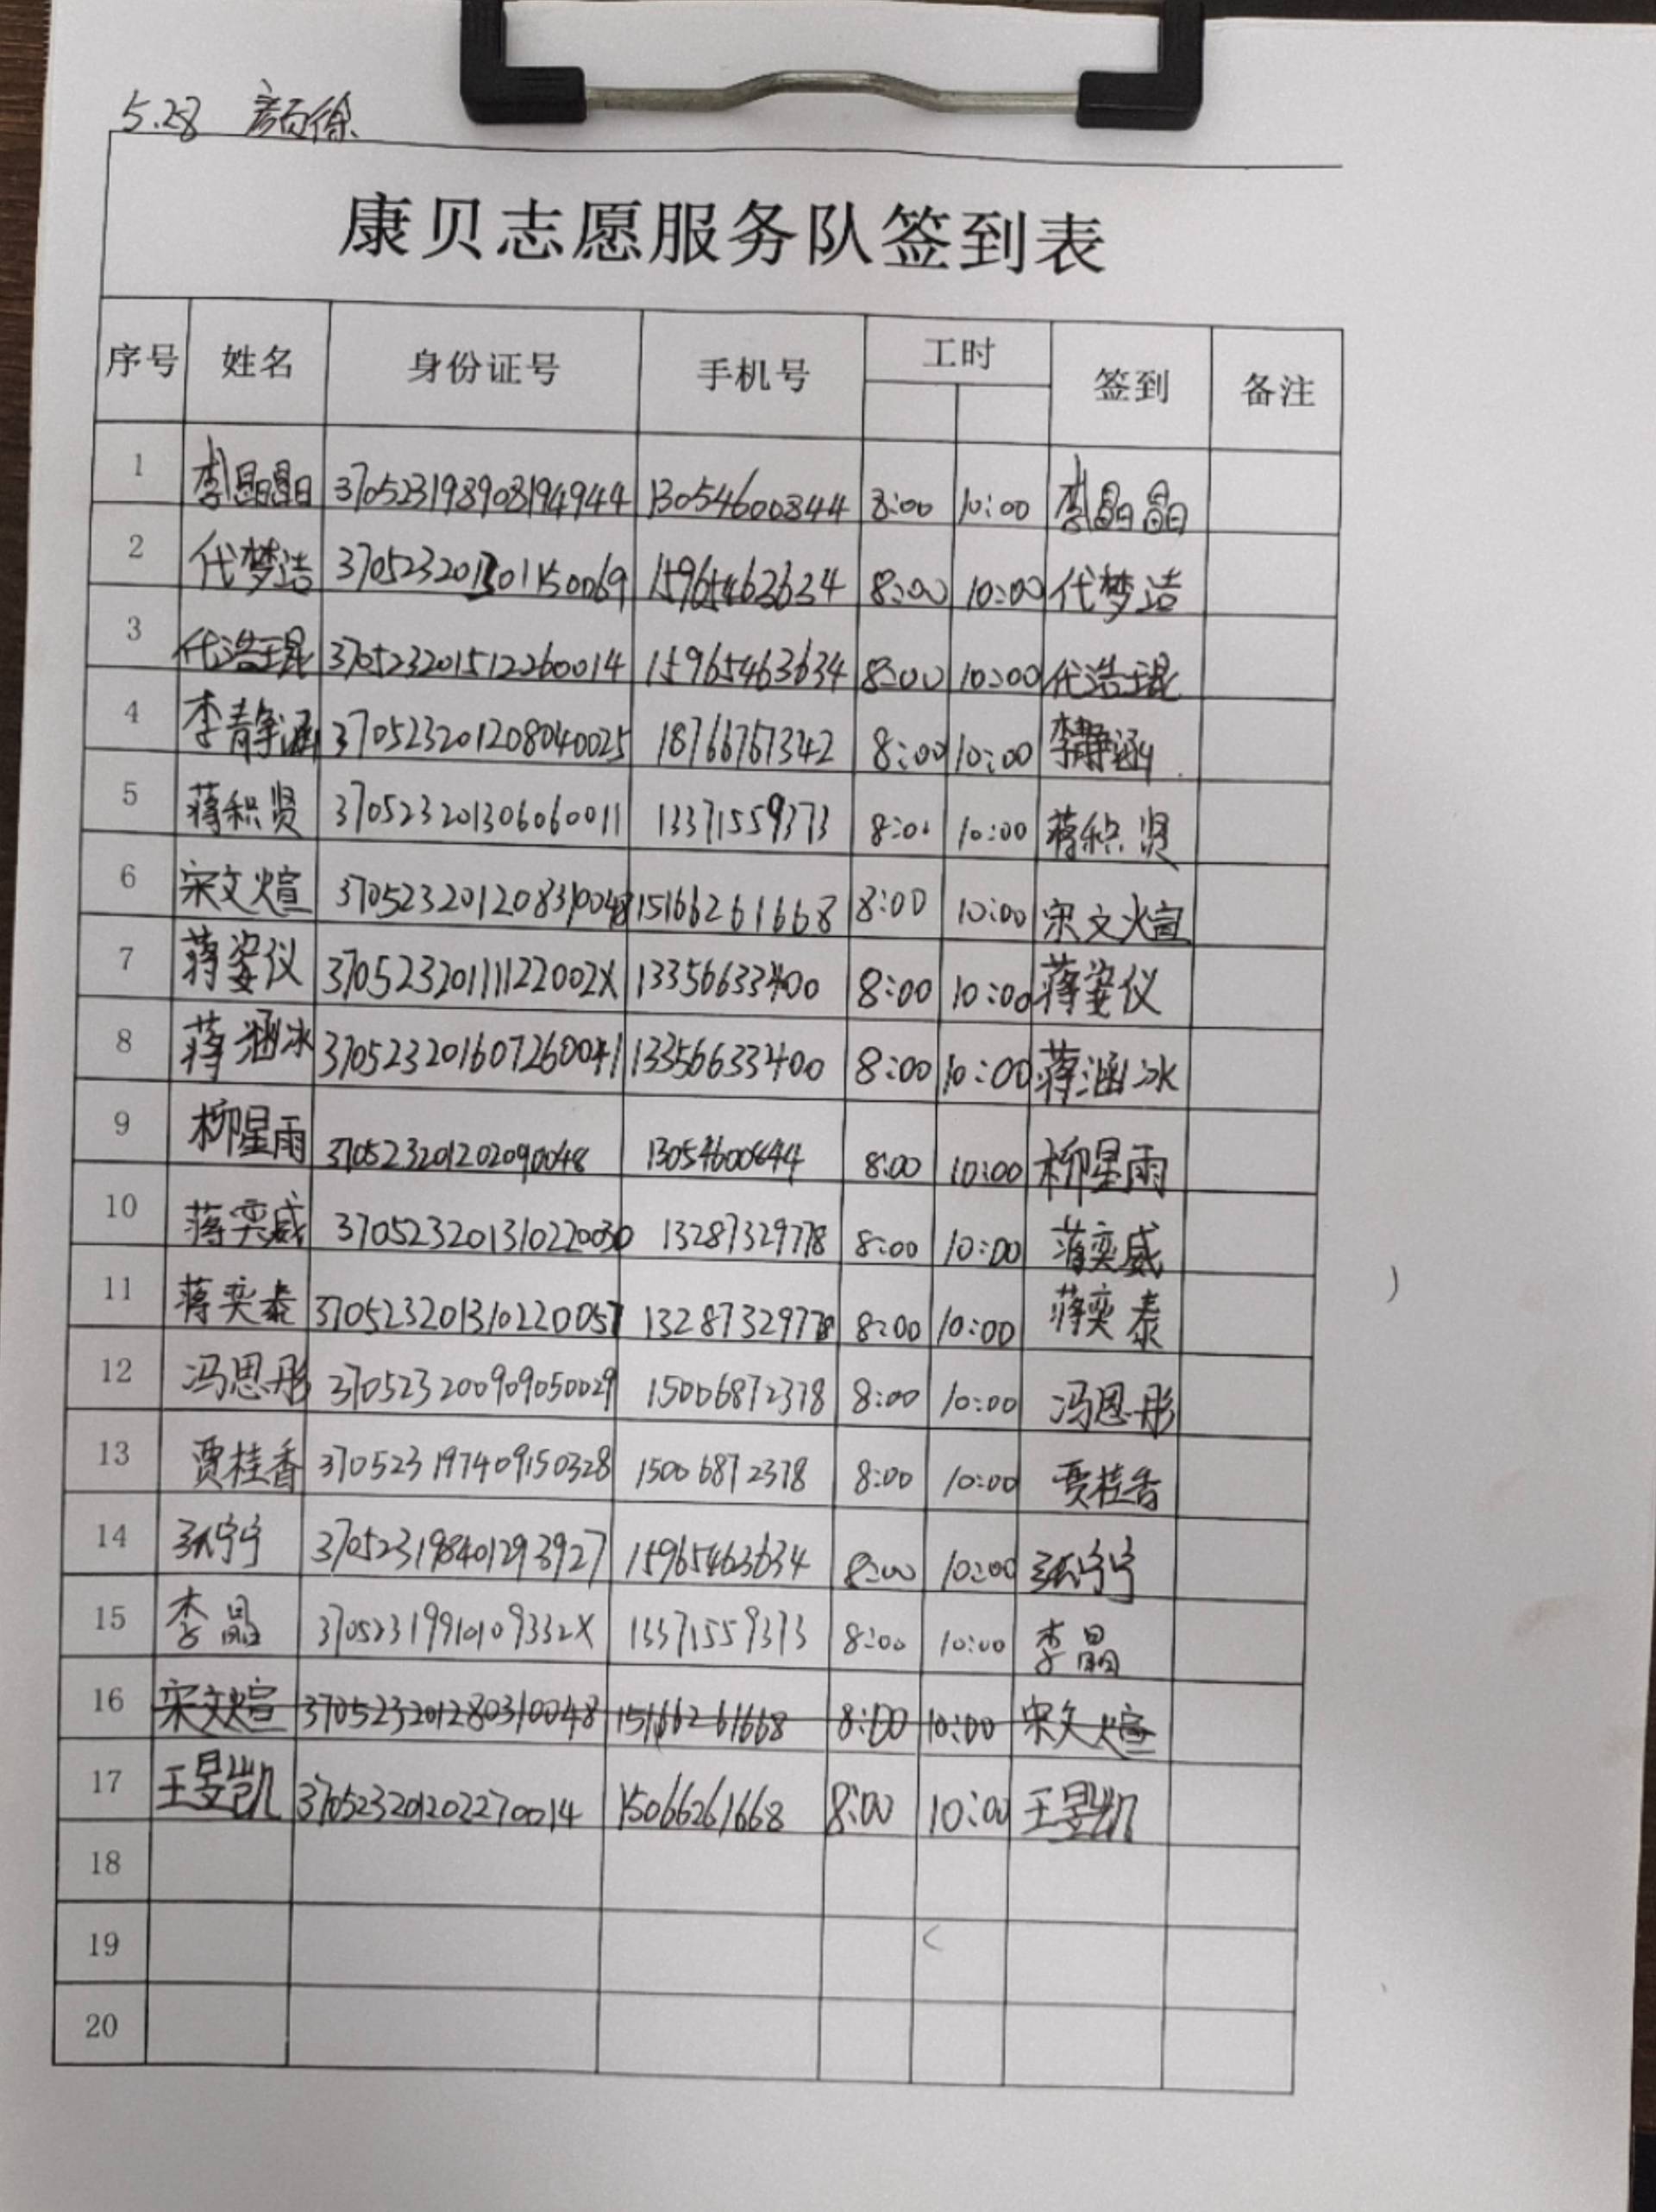 5.28 颜徐
康贝志愿服务队签到表
序号 姓名 身份证号 手机号 工时 签到 备注
1 李晶晶 370523198908194944 13054600844 8:00 10:00 李晶晶
2 代梦洁 370523201301150069 15965463634 8:00 10:00 代梦洁
3 代浩琨 370523201512260014 15965463634 8:00 10:00 代浩琨
4 李静涵 370523201208040025 18766767342 8:00 10:00 李静涵
5 蒋积贤 370523201306060011 13371559373 8:00 10:00 蒋积贤
6 宋文煊 370523201208310048 15166261668 8:00 10:00 宋文煊
7 蒋姿仪 37052320111122002X 13356633400 8:00 10:00 蒋姿仪
8 蒋涵冰 370523201607260041 13356633400 8:00 10:00 蒋涵冰
9 柳星雨 370523201202090048 13054600844 8:00 10:00 柳星雨
10 蒋奕威 370523201310220030 13287329778 8:00 10:00 蒋奕威
11 蒋奕泰 370523201310220057 13287329778 8:00 10:00 蒋奕泰
12 冯恩彤 370523200909050029 15006872378 8:00 10:00 冯恩彤
13 贾桂香 370523197409150328 15006872378 8:00 10:00 贾桂香
14 张宁宁 370523198401293927 15965463634 8:00 10:00 张宁宁
15 李晶 37052319910109332X 13371559373 8:00 10:00 李晶
16 宋文煊 370523201280310048 15166261668 8:00 10:00 宋文煊
17 王昱凯 370523201202270014 15066261668 8:00 10:00 王昱凯
18
19
20